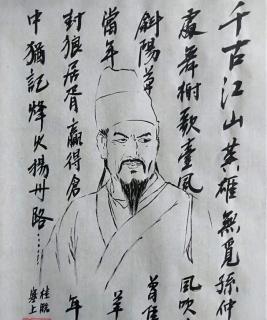 千古江山英雄無覓孫仲
處舞榭歌臺風
風吹
斜陽草
曾
當年
封狼居胥贏得倉
年
中猶記烽火揚州路……
塞上